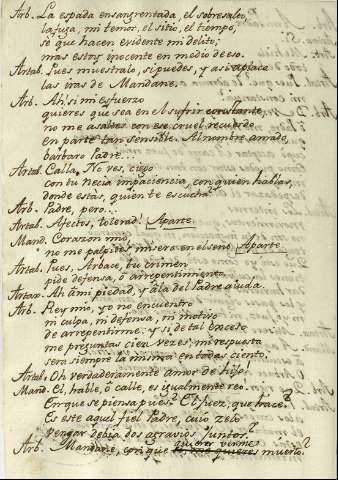 Arb. La espada ensangrentada, el sobresalto,
la fuga, mi temor, el sitio, el tiempo,
se que hacen evidente mi delito;
mas estoy inocente en medio de eso.
Artab. Pues muestralo, si puedes, y asi aplaca
las iras de Mandane.
Arb. Ah! si mi esfuerzo
quieres que sea en el sufrir constante,
no me asaltes con ese cruel recuerdo
en parte tan sensible. Al nombre amado,
bárbaro Padre...
Artab. Calla. No ves, ciego
con tu necia impaciencia, con quien hablas,
donde estás, quien te escucha?
Arb. Padre, pero...
Artab. Afectos, tolerad! Aparte.
Mand. Corazon mio,
no me palpites misero en el seno Aparte.
Artab. Pues, Arbace, tu crimen
pide defensa, ó arrepentimiento.
Artax. Ah ami piedad, y á la del Padre aiuda.
Arb. Rey mio, yo no encuentro
ni culpa, ni defensa, ni motivo
de arrepentirme: y si de tal suceso
me preguntas cien vezes; mi respuesta
sera siempre la misma en todas ciento.
Artab. Oh verdaderamente amor de hijo!
Mand. El, hable, ó calle, es igualmente reo.
En que se piensa pues? El Juez, que hace?
Es este aquel fiel Padre, cuio zelo
vengar debia dos agravios juntos?
Arb. Mandane, con que querer verme muerto?